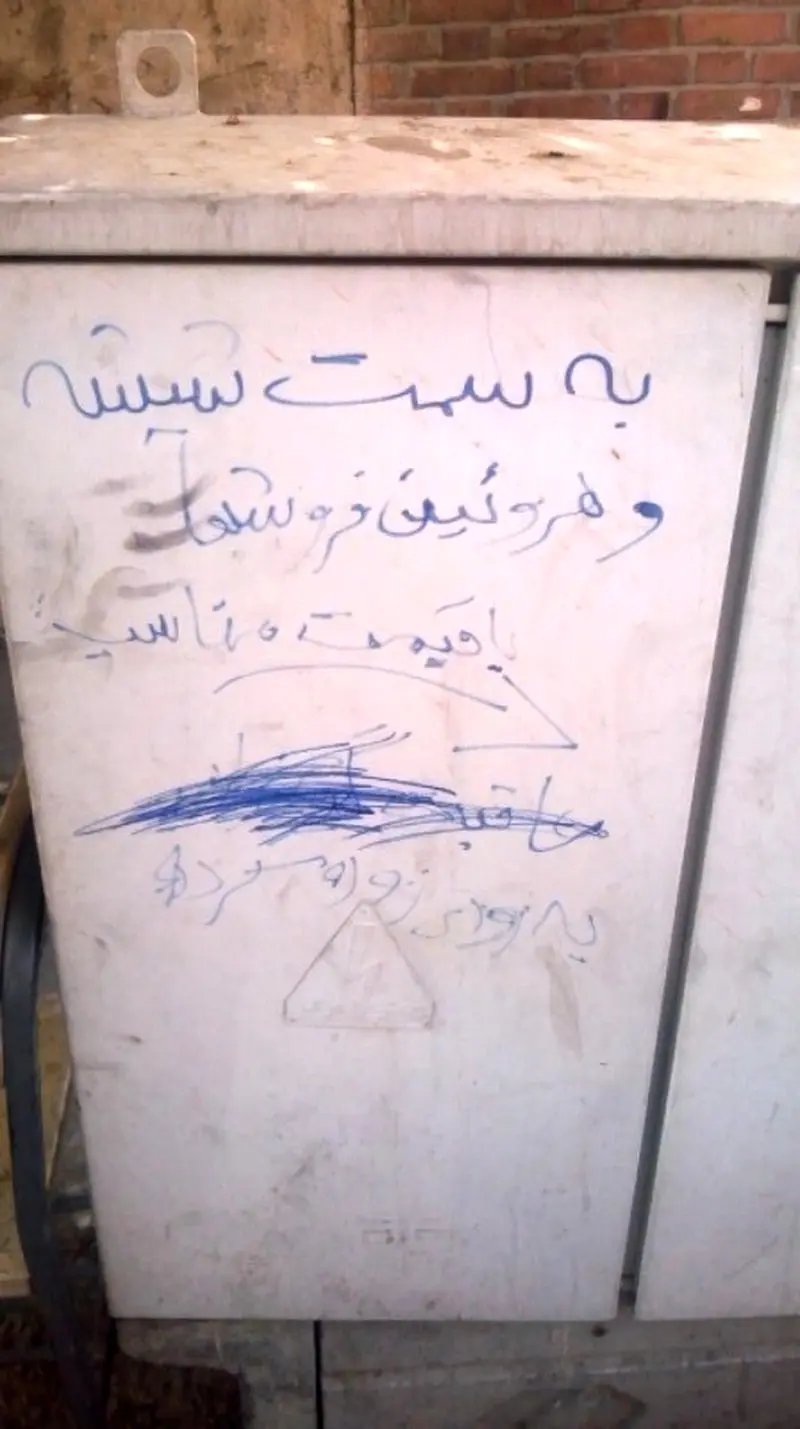 به سمت شیشه
و هروئین فروشها
با قیمت مناسب
به زودی زود